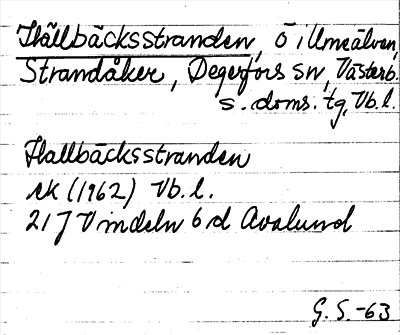 Hällbäcksstranden, Ö i Umeälven,
Strandåker, Degerfors sn, Västerb.
s. doms. tg, Vb. l.
Hallbäcksstranden
ek (1962) Vb. l.
21 J Vindeln 6 d Avalund
G. S. -63